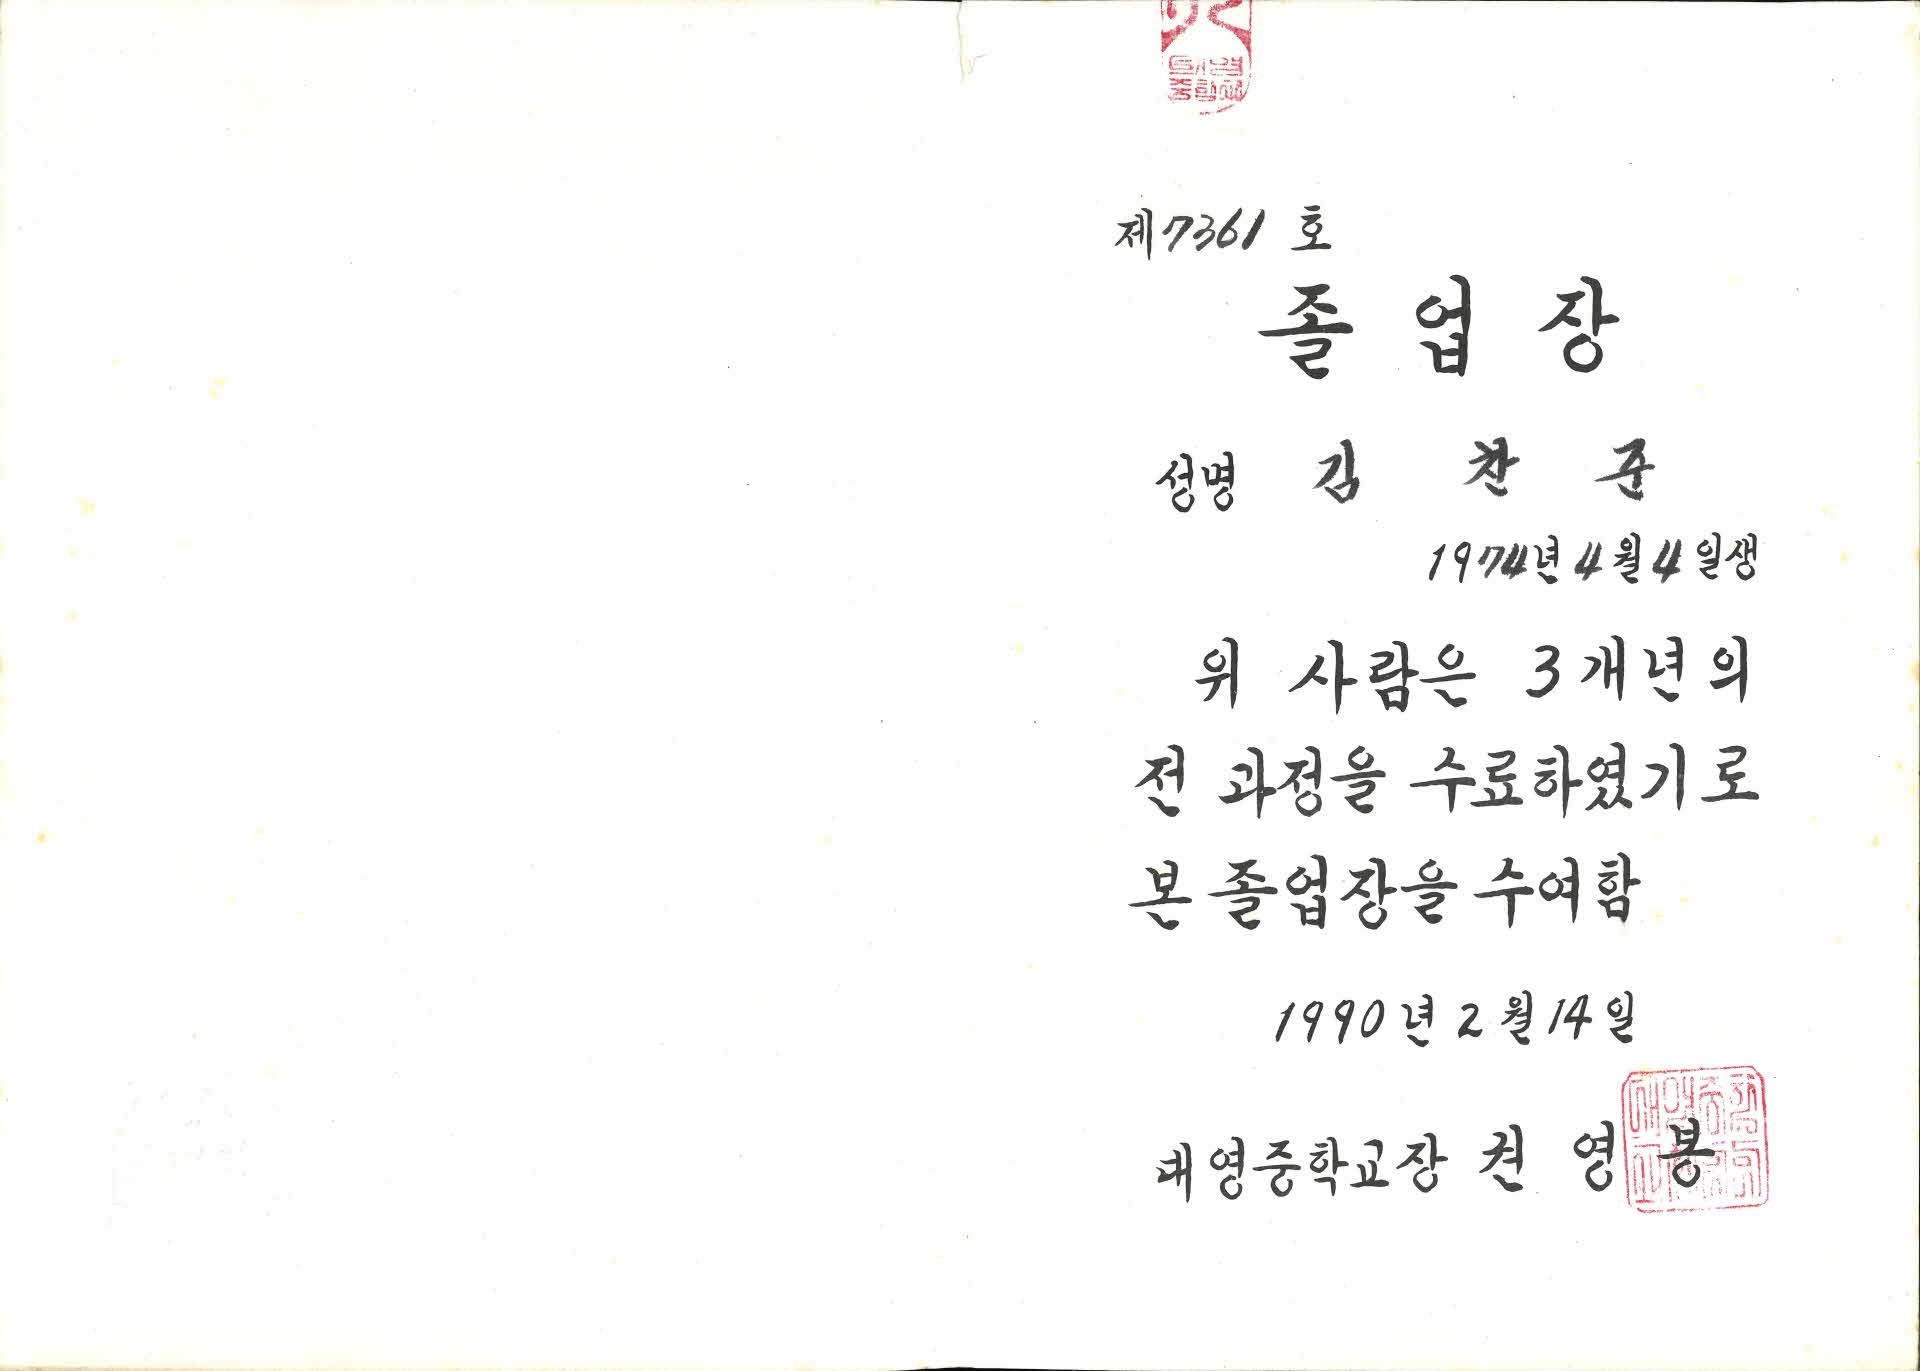 제7361 호
졸 업 장
성명 김 찬 준
1974년 4월 4일생
위 사람은 3개년의
전 과정을 수료하였기로
본 졸업장을 수여함
1990년 2월 14일
대영중학교장 권 영 봉